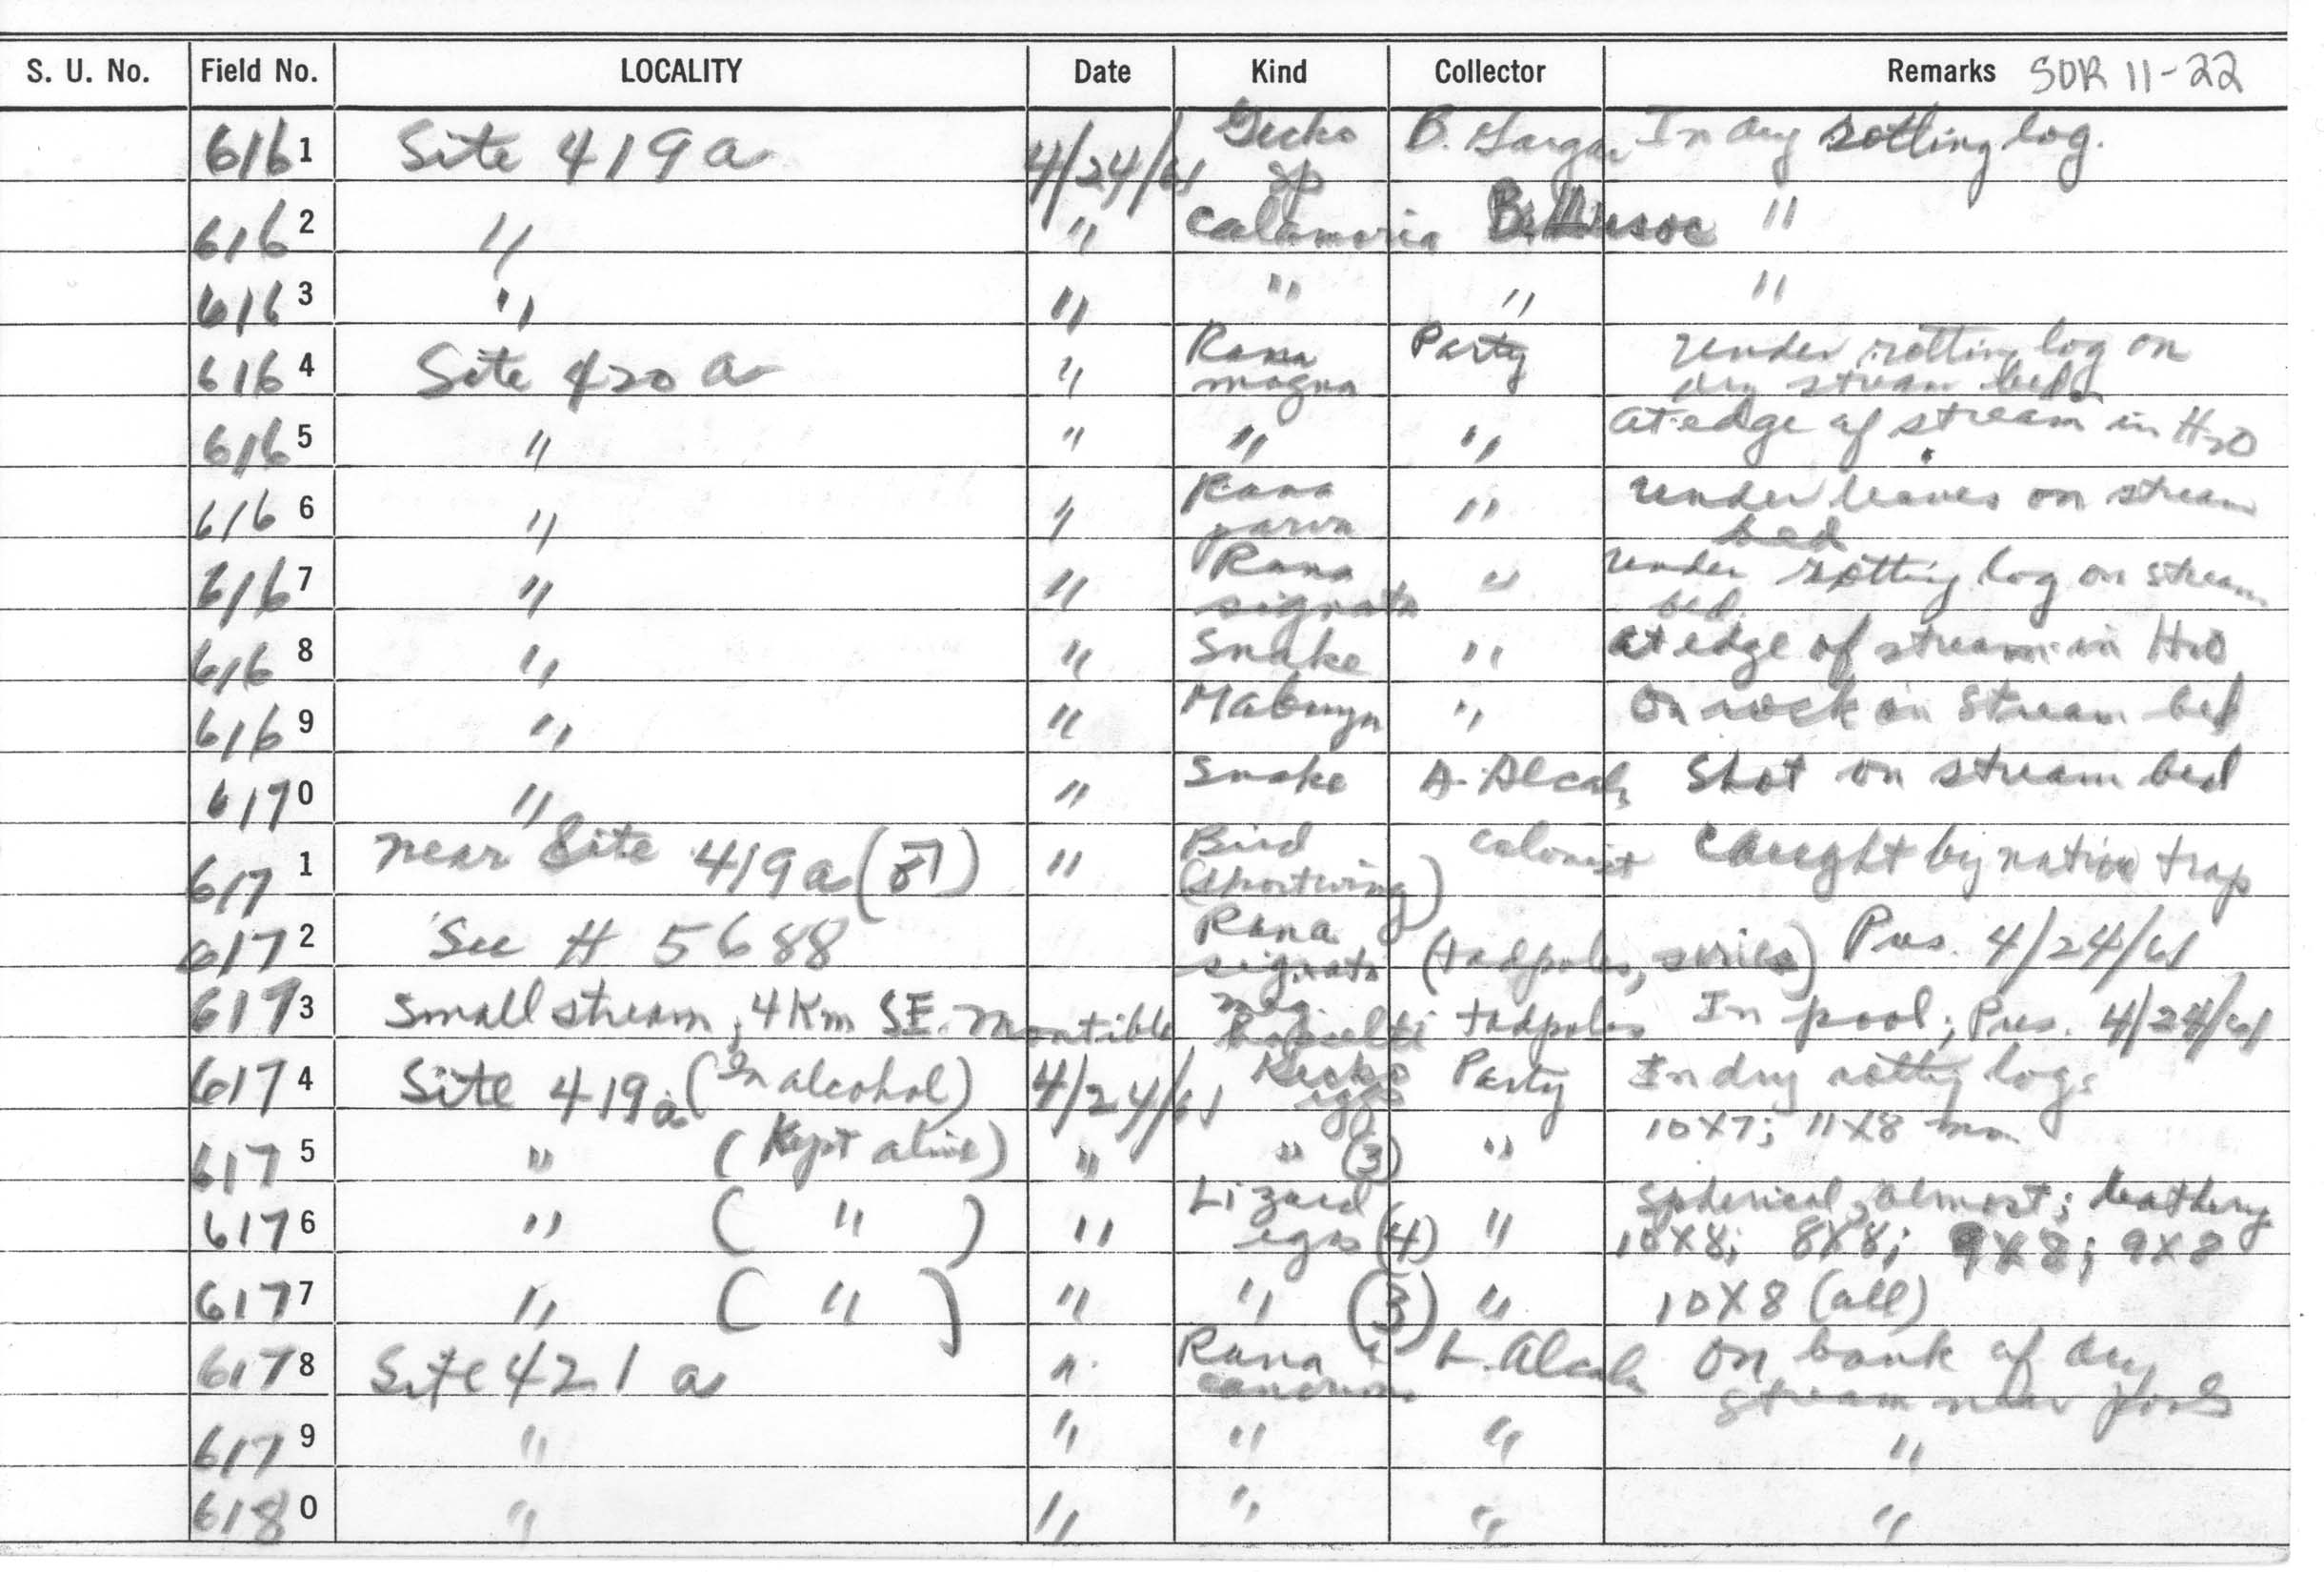 S. U. No. Field No. LOCALITY Date Kind Collector Remarks SDR 11-22
6161 Site 419a 4/24/61 Gecko sp B. Gargar In dry rotting log.
6162 " " Calamaria "
6163 " " " " "
6164 Site 420a " Rana magna Party under rotting log on dry stream bed
6165 " " " " at edge of stream in H2O
6166 " " Rana parva " under leaves on stream bed
6167 " " Rana signata " under rotting log on stream bed
6168 " " Snake " at edge of stream in H2O
6169 " " Mabuya " On rock on Stream bed
6170 " " Snake A. Alcala Shot on stream bed
6171 near Site 419a (♂) " Bird (shortwing) colonist Caught by native trap
6172 See # 5688 Rana signata (tadpoles, series) Pres. 4/24/61
6173 Small stream, 4 Km SE. Montible Meg. hasselti tadpoles In pool; Pres. 4/24/61
6174 Site 419a (In alcohol) 4/24/61 Gecko egg Party In dry rotting logs
6175 " (Kept alive) " " (3) " 10X7; 11X8 mm
6176 " ( " ) " Lizard egs (4) " Spherical, almost; leathery 10X8; 8X8; 9X8; 9X8
6177 " ( " ) " " (3) " 10X8 (all)
6178 Site 421a " Rana cancrivora L. Alcala On bank of dry stream near pools
6179 " " " " "
6180 " " " " "